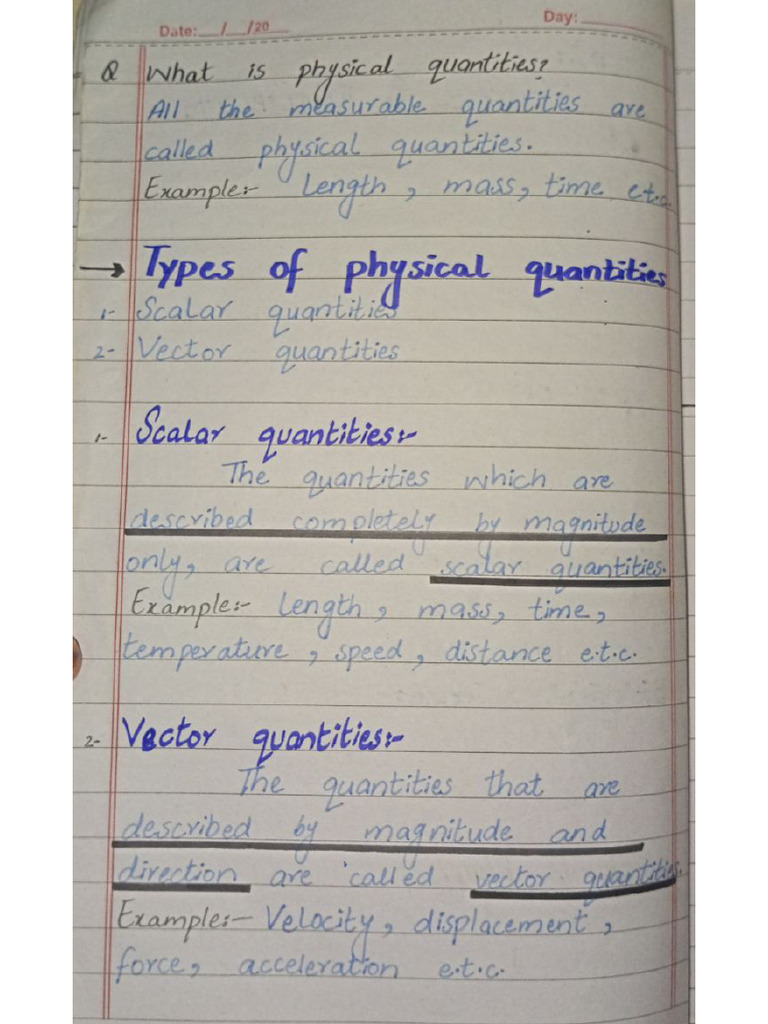 Date:__/__/20__ Day:______
Q What is physical quantities?
All the measurable quantities are
called physical quantities.
Example:- length, mass, time e.t.c.
→ Types of physical quantities
1- Scalar quantities
2- Vector quantities
1- Scalar quantities:-
The quantities which are
described completely by magnitude
only, are called scalar quantities.
Example:- length, mass, time,
temperature, speed, distance e.t.c.
2- Vector quantities:-
The quantities that are
described by magnitude and
direction are called vector quantities.
Example:- Velocity, displacement,
force, acceleration e.t.c.